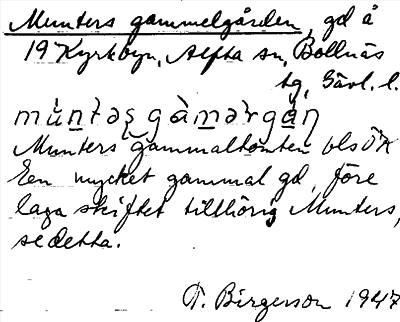 Munters gammelgården, gd å
19 Kyrkbyn, Alfta sn, Bollnäs
tg, Gävl. l.
mu̇ntəʂ gàmərgàɳ
Munters gammaltomten blsÖK
Een mycket gammal gd, före
laga skiftet tillhörig Munters,
se detta.
T. Birgerson 1947